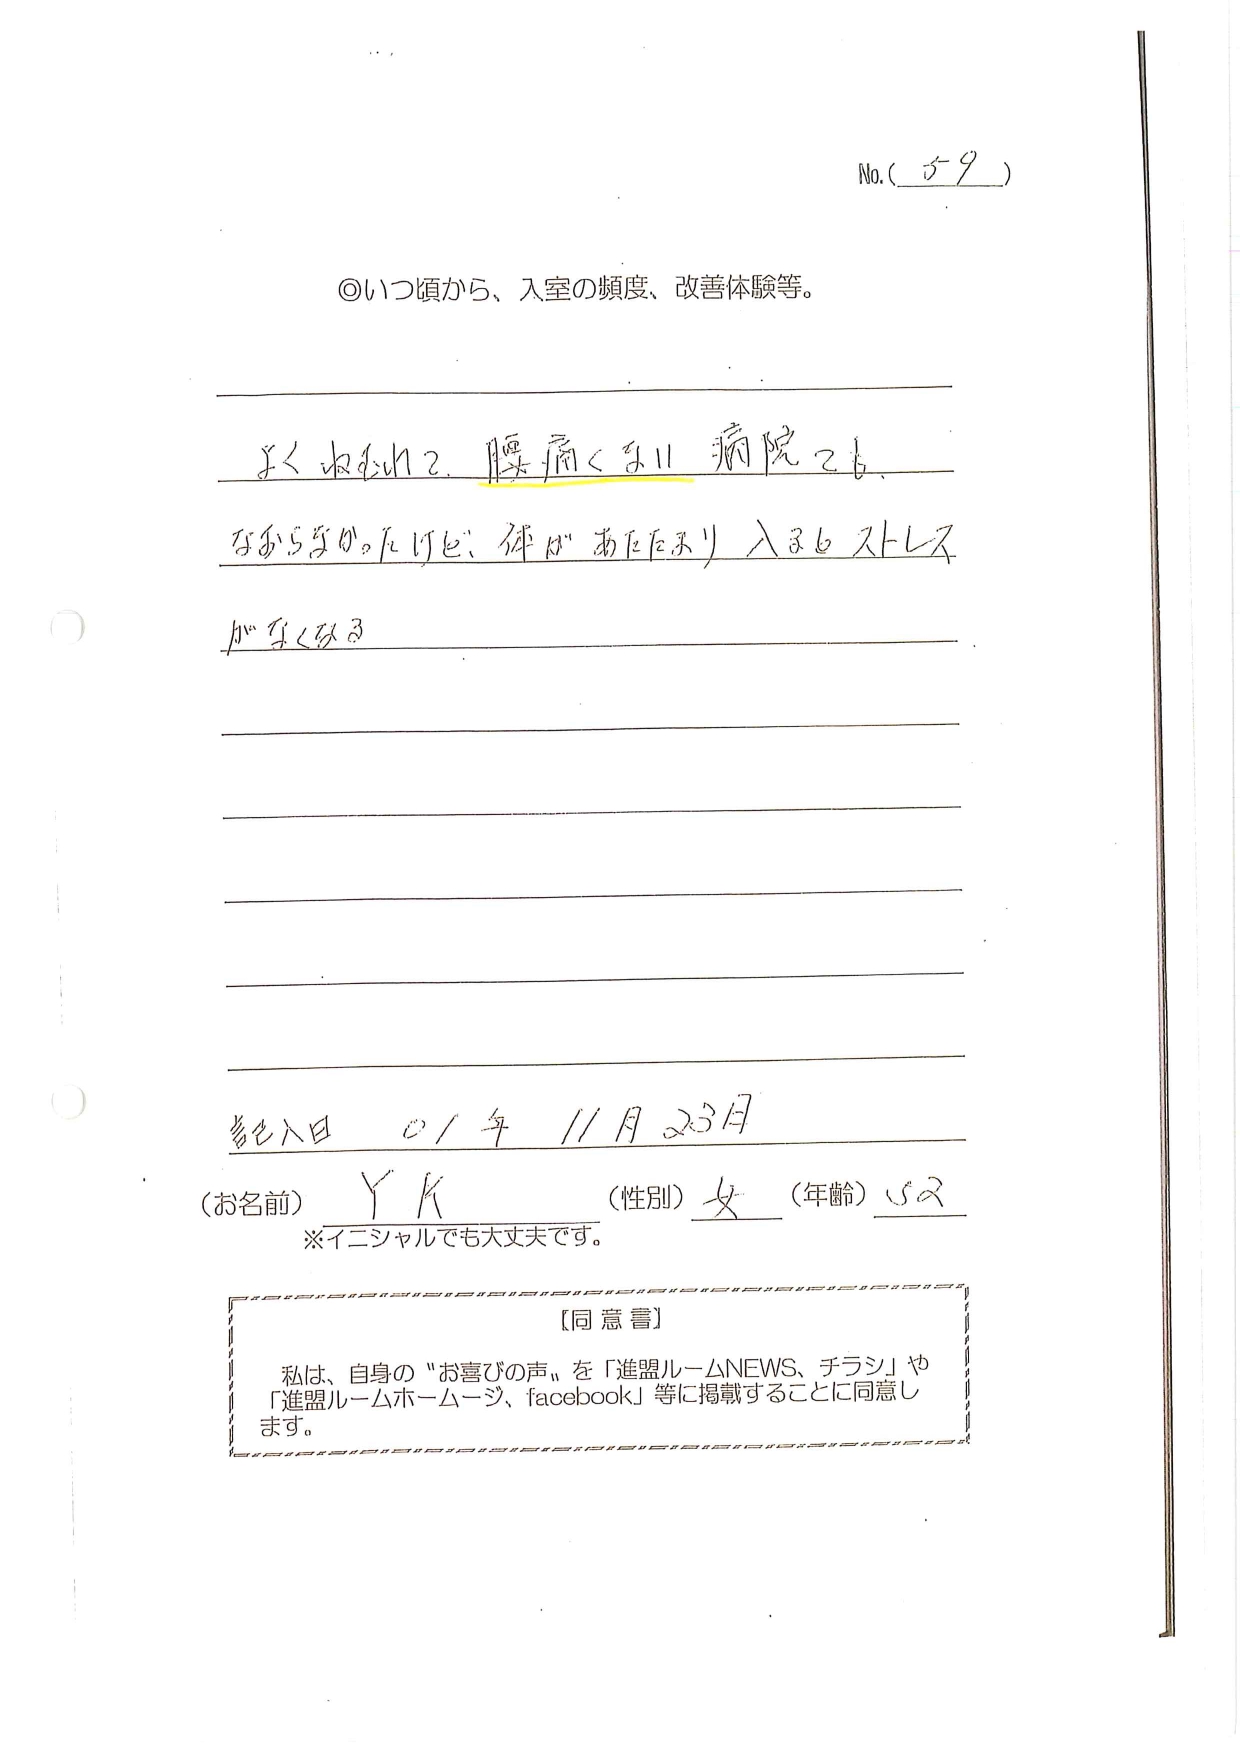 No.( 59 )
◎いつ頃から、入室の頻度、改善体験等。
よくねむれて、腰痛くない 病院でも、
なおらなかったけど、体があたたまり 入ると ストレス
がなくなる
記入日 01年 11月 23日
(お名前) Y K (性別) 女 (年齢) 52
※イニシャルでも大丈夫です。
[同 意 書]
私は、自身の〝お喜びの声〟を「進盟ルームNEWS、チラシ」や
「進盟ルームホームージ、facebook」等に掲載することに同意し
ます。